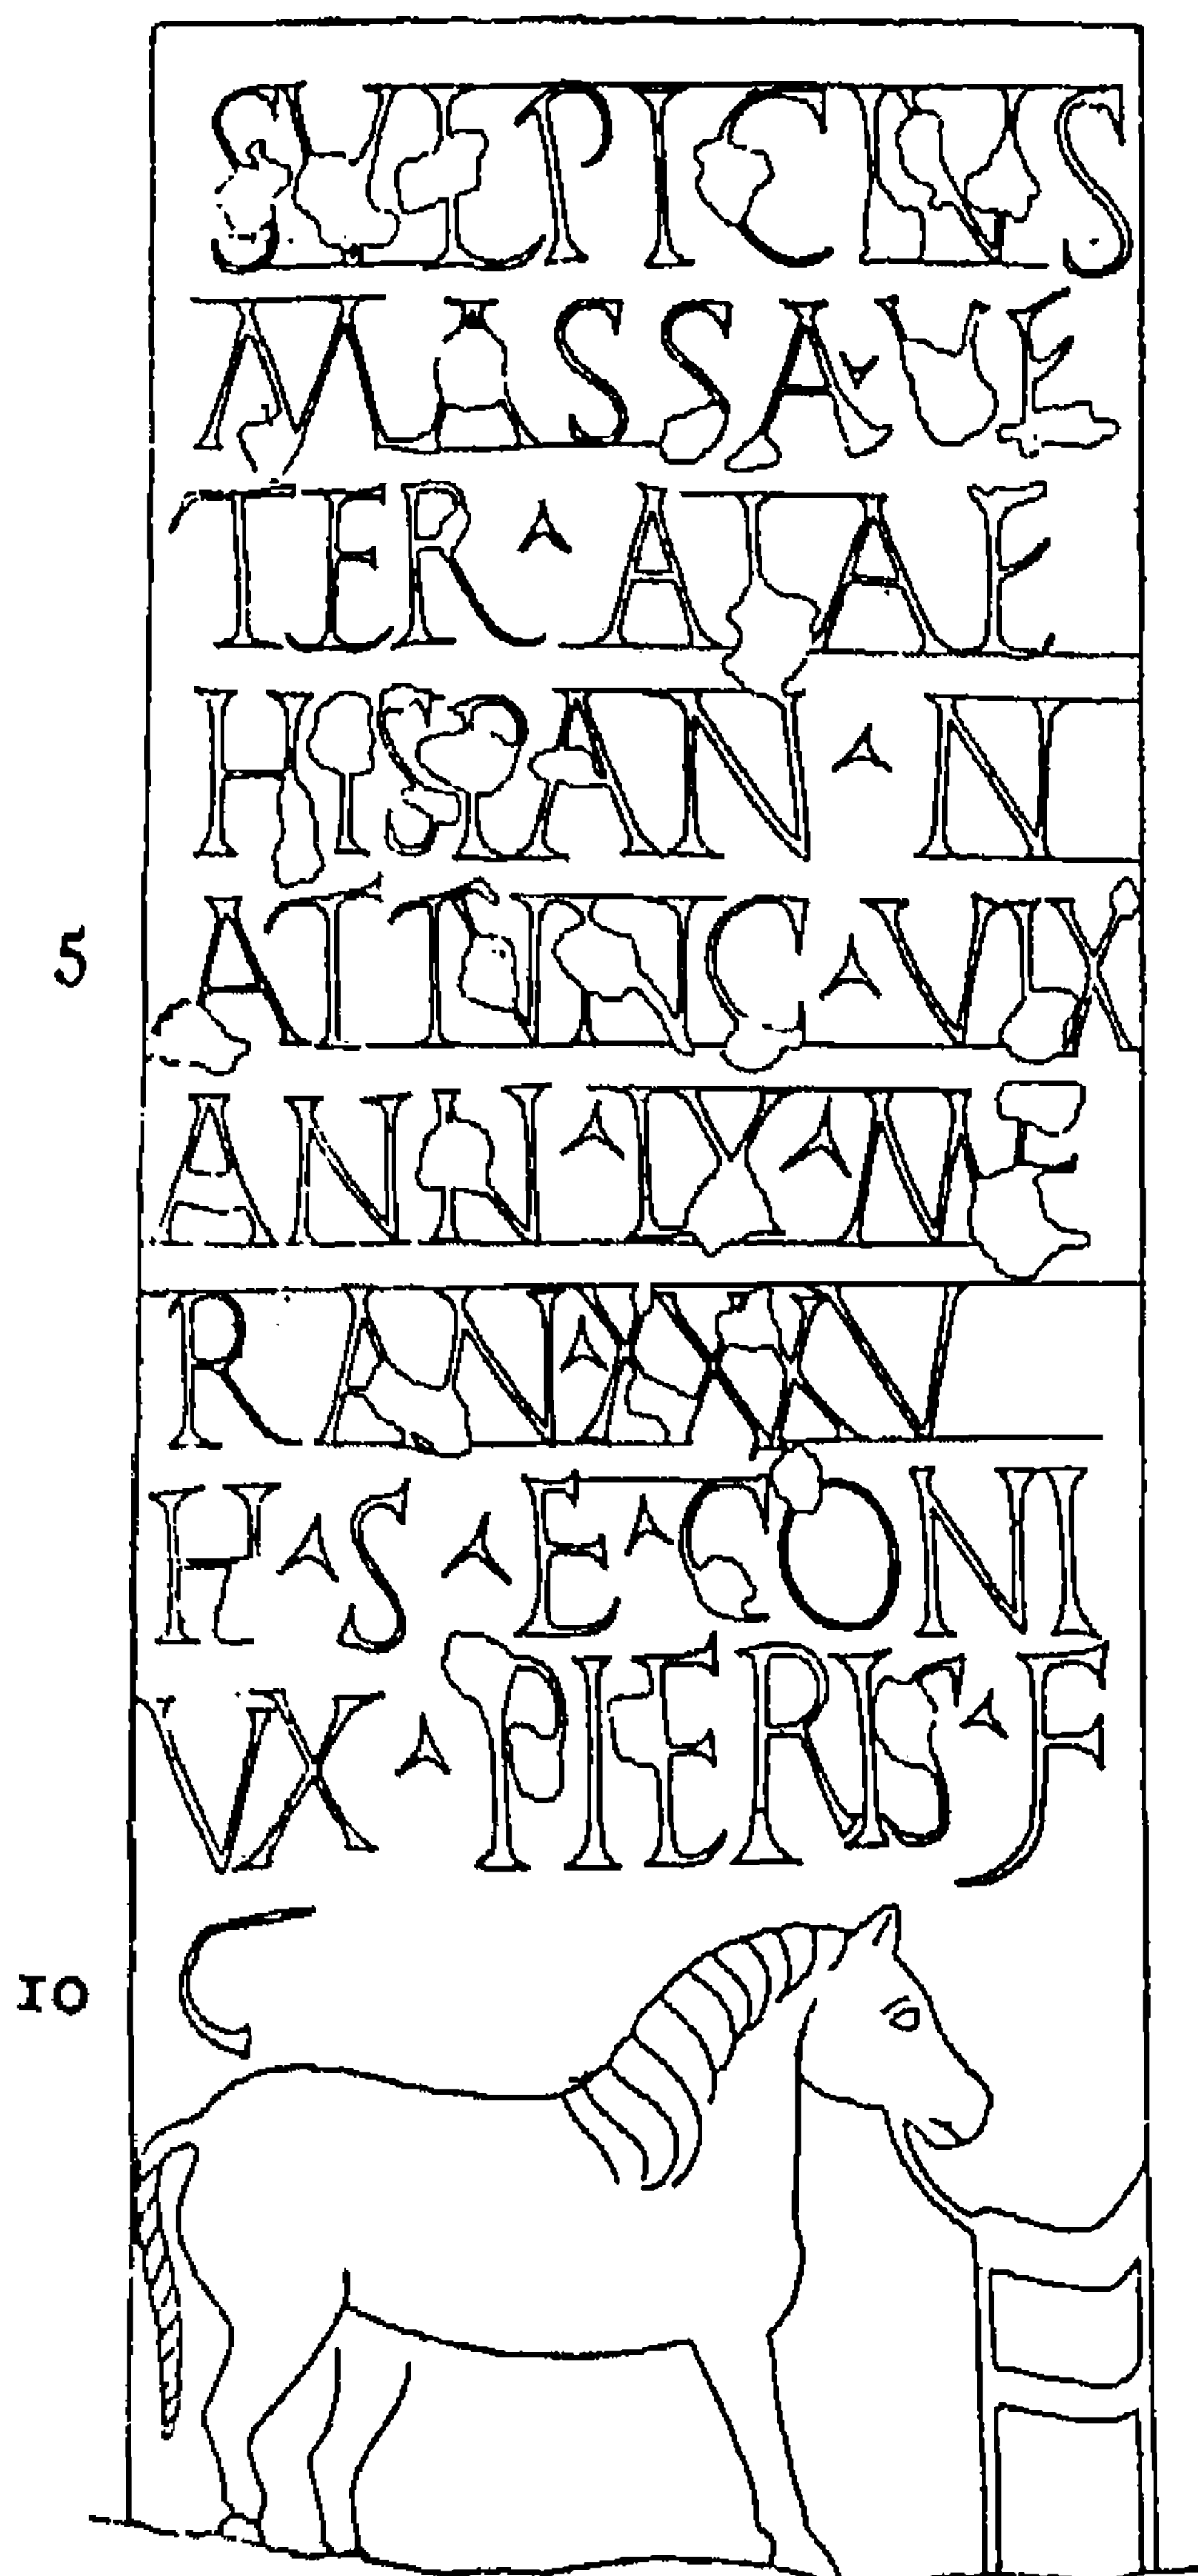 SVLPICIVS
MASSA · VE
TER · ALAE
HISPAN · N
ATTNNG · VIX
ANN · LX · ME
RAN · XXXV
H · S · E · CONI
VX · PIERIS · F
C
5
10